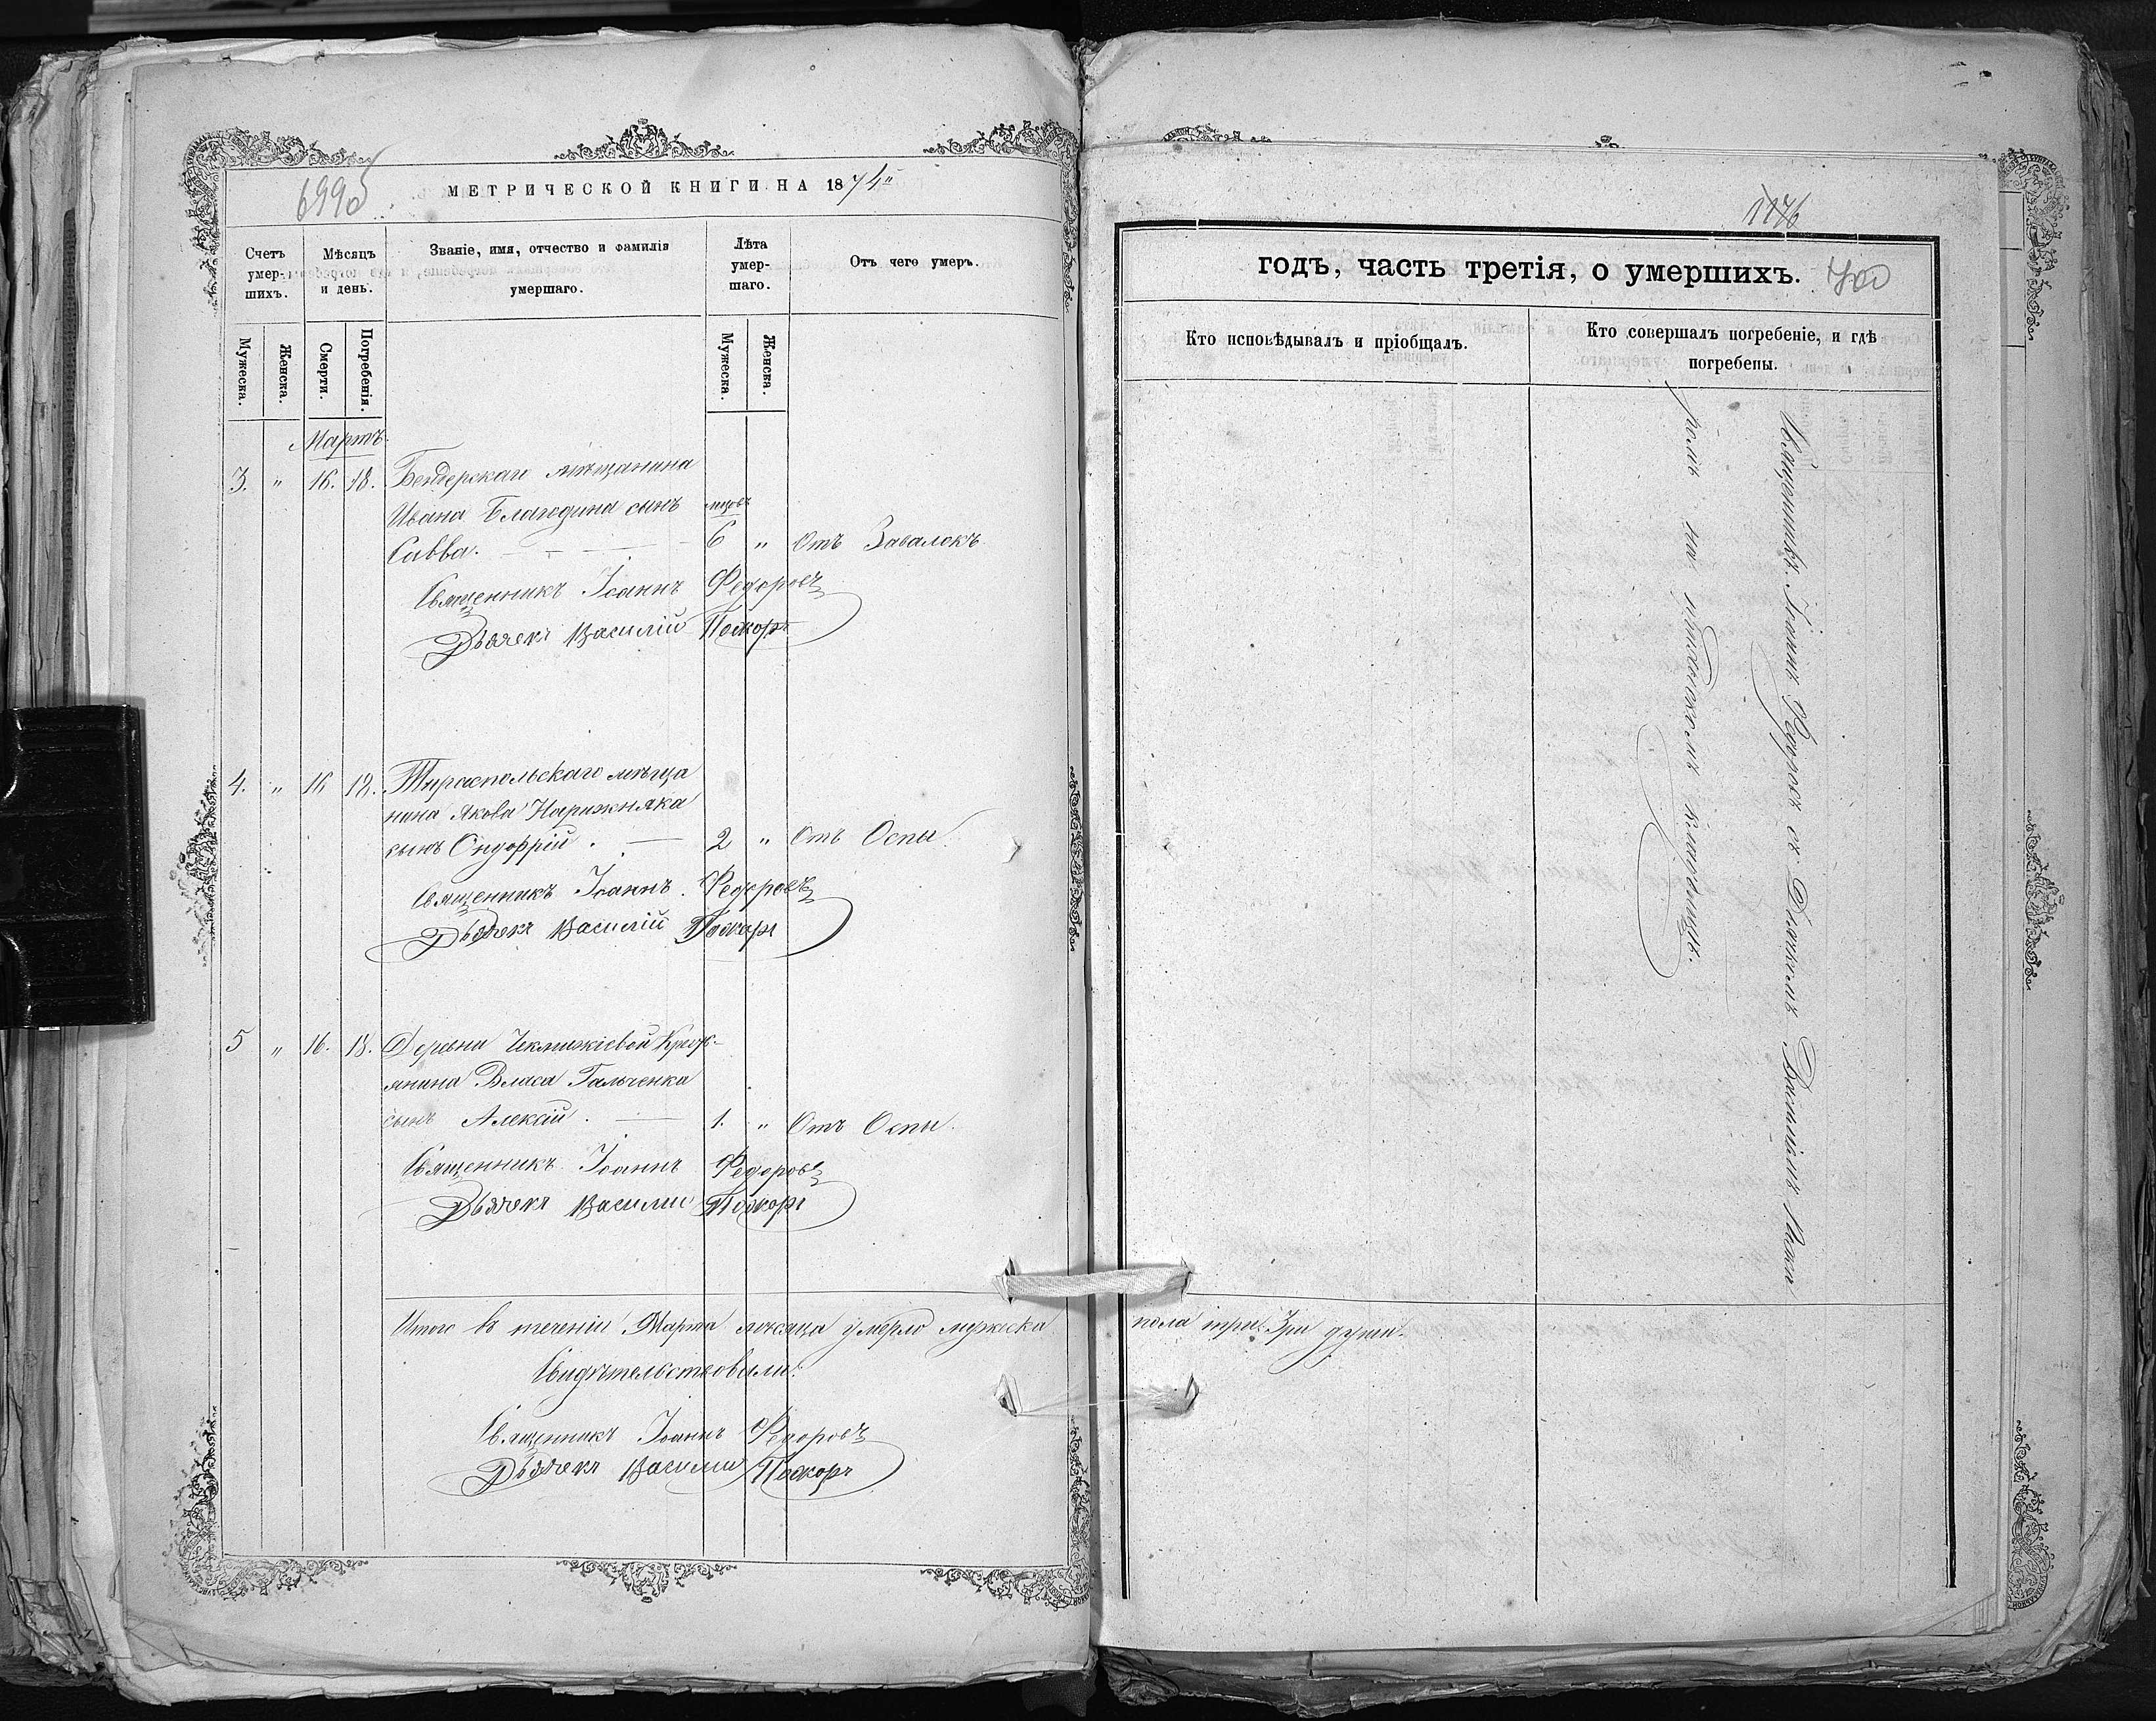 699об
МЕТРИЧЕСКОЙ КНИГИ НА 1874й
Счетъ умер-шихъ.
Мѣсяцъ и день.
Званіе, имя, отчество и фамилія умершаго.
Лѣта умер-шаго.
Отъ чего умеръ.
Мужеска.
Женска.
Смерти.
Погребенія.
Мужеска.
Женска.
Мартъ.
3. " 16. 18. Бендерскаго мѣщанина
Ивана Благодина сынъ мцовъ
Савва. 6 " Отъ Завалокъ
Священникъ Іоаннъ Федоровъ
Дьячекъ Василій
4. " 16 18. Тираспольскаго мѣща
нина Якова Нарижняка
сынъ Онуфрій. 2 " Отъ Оспы.
Священникъ Іоаннъ Федоровъ
Дьячекъ Василій
5 " 16. 18. Деревни Крестьянина
Власа Гальченка
сынъ Алексій. 1. " Отъ Оспы.
Священникъ Іоаннъ Федоровъ
Дьячекъ Василій
Итого въ теченіи Марта мѣсяца умерло мужеска
Свидѣтельствовали:
Священникъ Іоаннъ Федоровъ
Дьячекъ Василій
1176
годъ, часть третія, о умершихъ. 700
Кто исповѣдывалъ и пріобщалъ.
Кто совершалъ погребеніе, и гдѣ погребены.
Священникъ Іоаннъ Федоровъ съ Дьячкомъ Василіемъ
на приходскомъ кладбищѣ.
пола три. 3ри души.